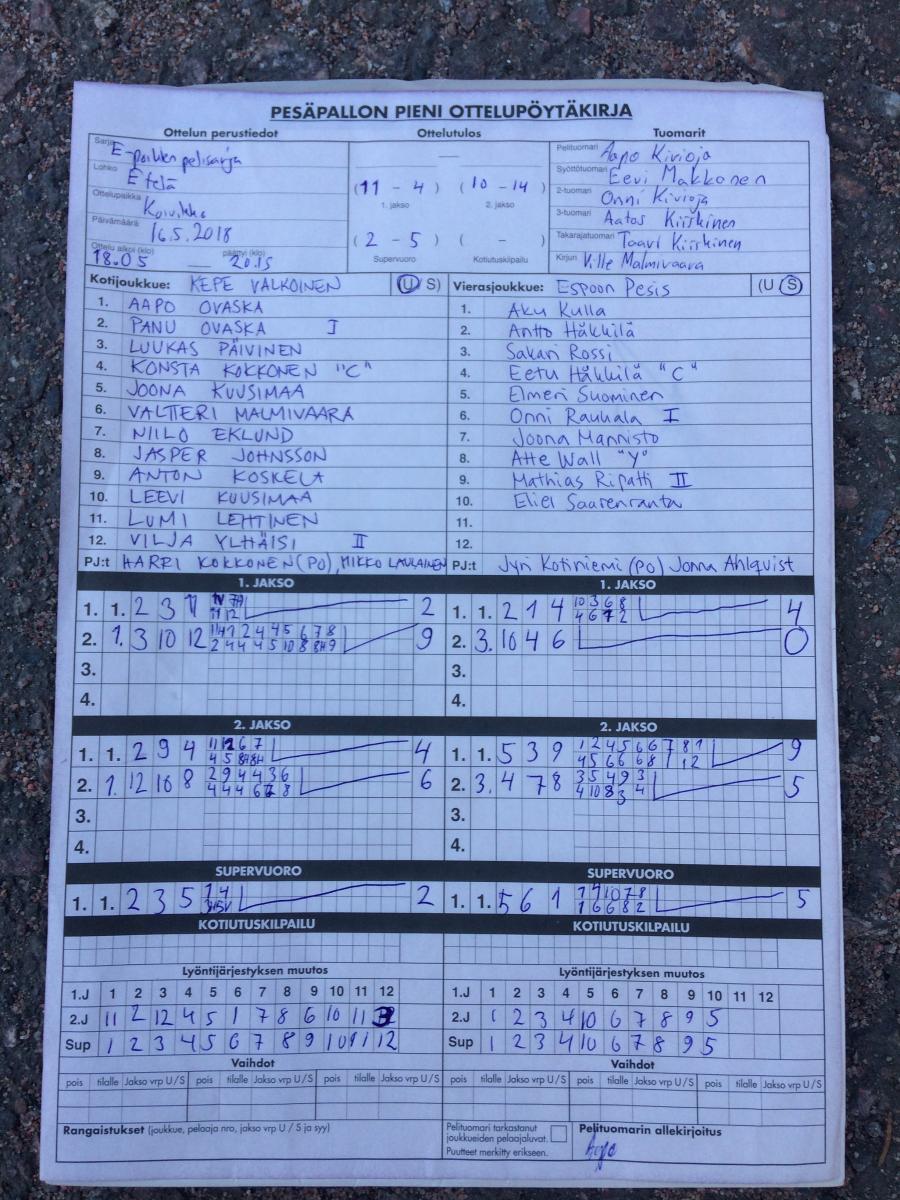 PESÄPALLON PIENI OTTELUPÖYTÄKIRJA
Ottelun perustiedot
Ottelutulos
Tuomarit
Sarja E-poikien pelisarja
Lohko Etelä
Ottelupaikka Koivikko
Päivämäärä 16.5.2018
Ottelu alkoi (klo) 18.05 päättyi (klo) 20.15
(11 - 4) (10 - 14)
1. jakso 2. jakso
(2 - 5) ( - )
Supervuoro Kotiutuskilpailu
Pelituomari Aapo Kivioja
Syöttötuomari Eevi Makkonen
2-tuomari Onni Kivioja
3-tuomari Aatos Kiiskinen
Takarajatuomari Taavi Kiiskinen
Kirjuri Ville Malmivaara
Kotijoukkue: KEPE VALKOINEN (U/S)
1. AAPO OVASKA
2. PANU OVASKA I
3. LUUKAS PÄIVINEN
4. KONSTA KOKKONEN "C"
5. JOONA KUUSIMAA
6. VALTTERI MALMIVAARA
7. NIILO EKLUND
8. JASPER JOHNSSON
9. ANTON KOSKELA
10. LEEVI KUUSIMAA
11. LUMI LEHTINEN
12. VILJA YLHÄISI II
PJ:t HARRI KOKKONEN (PO), MIKKO LAULAINEN
Vierasjoukkue: Espoon Pesis (U/S)
1. Aku Kulla
2. Antto Häkkilä
3. Sakari Rossi
4. Eetu Häkkilä "C"
5. Elmeri Suominen
6. Onni Rauhala I
7. Joona Mannisto
8. Atte Wall "Y"
9. Mathias Ripatti II
10. Eliel Saarenranta
11.
12.
PJ:t Jyri Kotiniemi (PO) Jonna Ahlqvist
1. JAKSO
1. 1. 2 3 11 2
2. 1. 3 10 12 9
3.
4.
1. JAKSO
1. 1. 2 1 4 4
2. 3. 10 4 6 0
3.
4.
2. JAKSO
1. 1. 2 9 4 4
2. 1. 12 10 8 6
3.
4.
2. JAKSO
1. 1. 5 3 9 9
2. 3. 4 7 8 5
3.
4.
SUPERVUORO
1. 1. 2 3 5 2
SUPERVUORO
1. 1. 5 6 1 5
KOTIUTUSKILPAILU
KOTIUTUSKILPAILU
Lyöntijärjestyksen muutos
1.J 1 2 3 4 5 6 7 8 9 10 11 12
2.J 11 2 12 4 5 1 7 8 6 10 11
Sup 1 2 3 4 5 6 7 8 9 10 11 12
Lyöntijärjestyksen muutos
1.J 1 2 3 4 5 6 7 8 9 10 11 12
2.J 1 2 3 4 10 6 7 8 9 5
Sup 1 2 3 4 10 6 7 8 9 5
Vaihdot
pois tilalle Jakso vrp U/S pois tilalle Jakso vrp U/S pois tilalle Jakso vrp U/S
Vaihdot
pois tilalle Jakso vrp U/S pois tilalle Jakso vrp U/S pois tilalle Jakso vrp U/S
Rangaistukset (joukkue, pelaaja nro, jakso vrp U / S ja syy)
Pelituomari tarkastanut
joukkueiden pelaajaluvat.
Puutteet merkitty erikseen.
Pelituomarin allekirjoitus